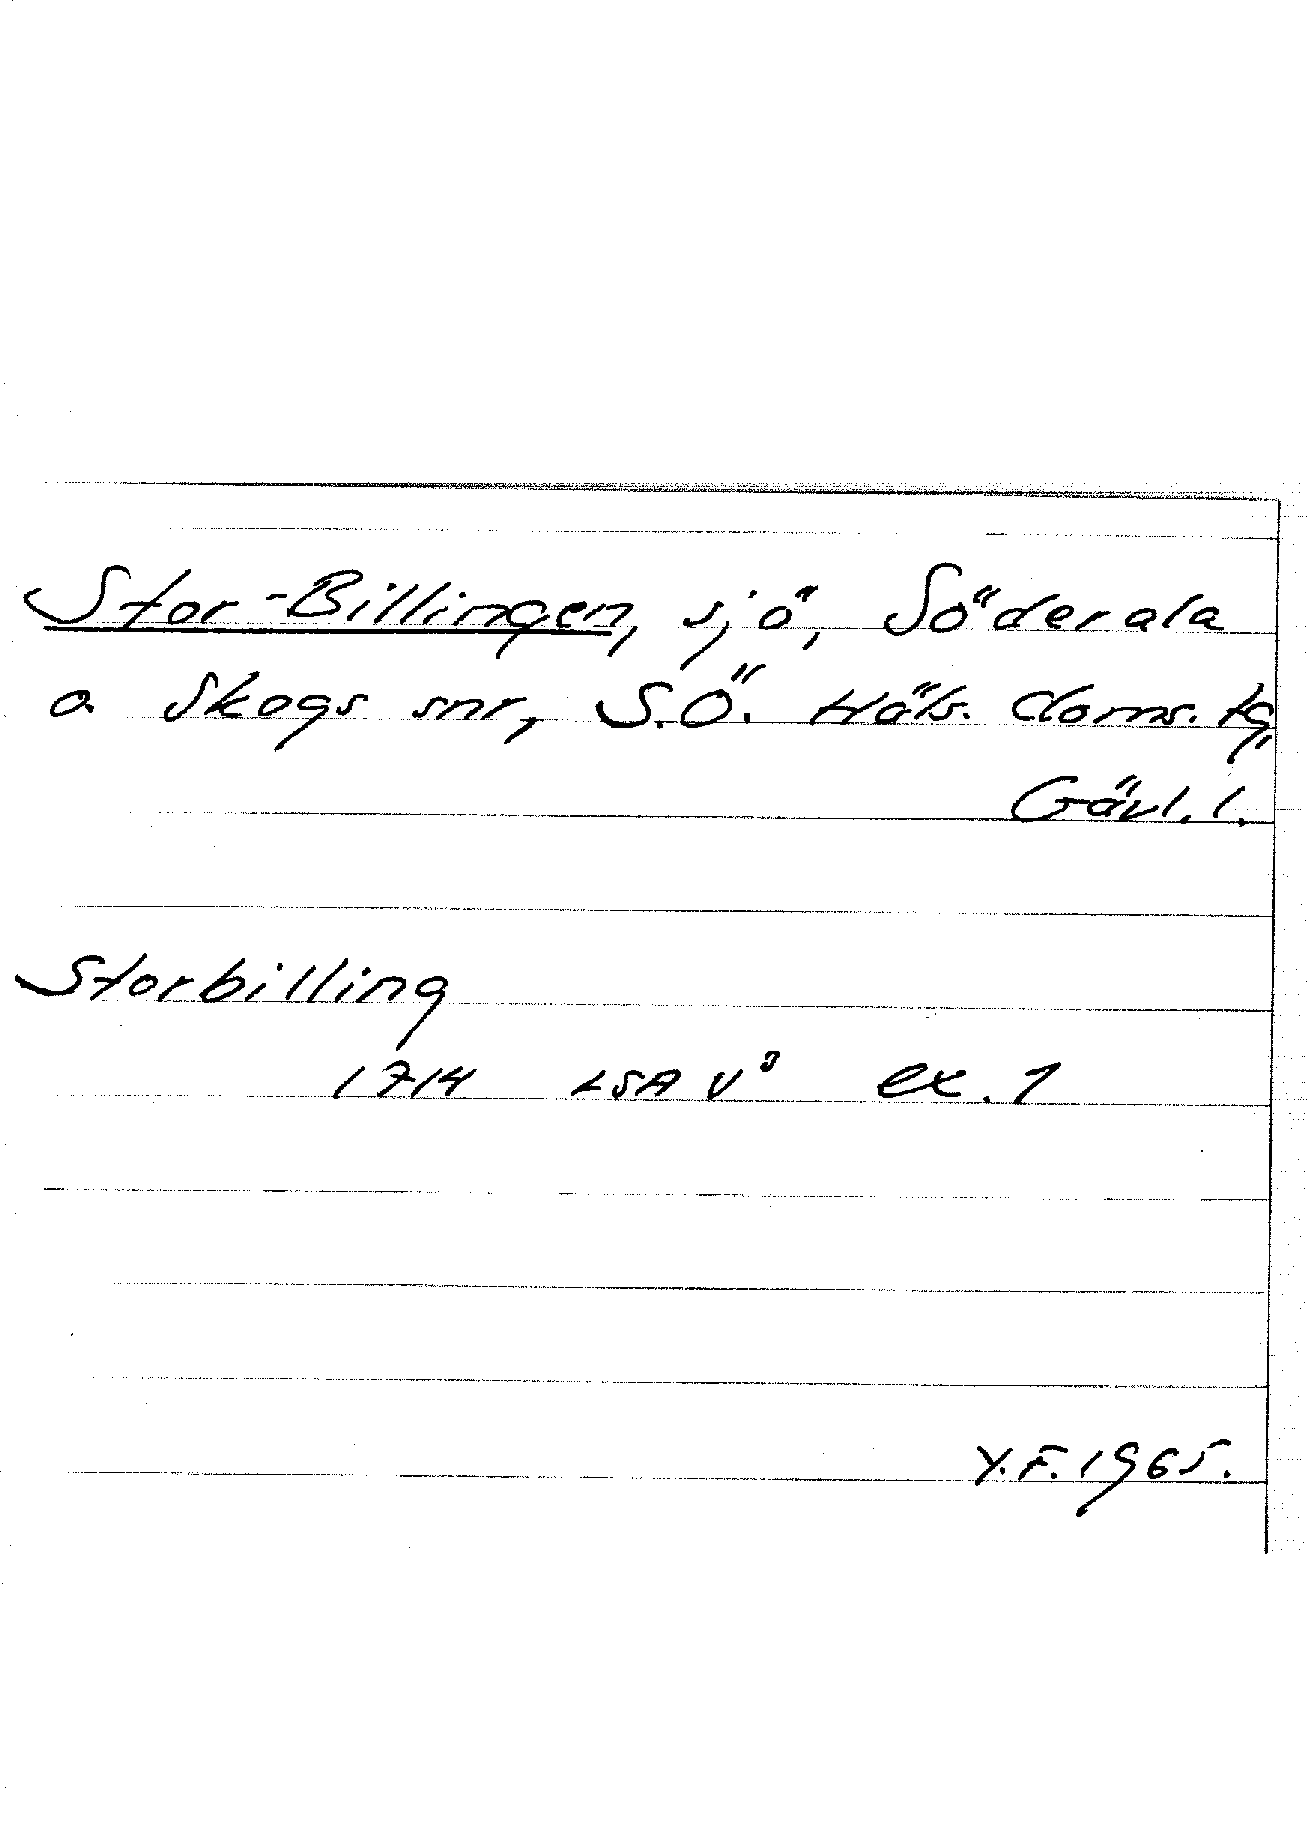 Stor-Billingen, sjö, Söderala
o. Skogs snr, S.Ö. Häls. doms. tg
Gävl. l.
Storbilling
1714 LSA V³ ex. 1
Y.F. 1965.